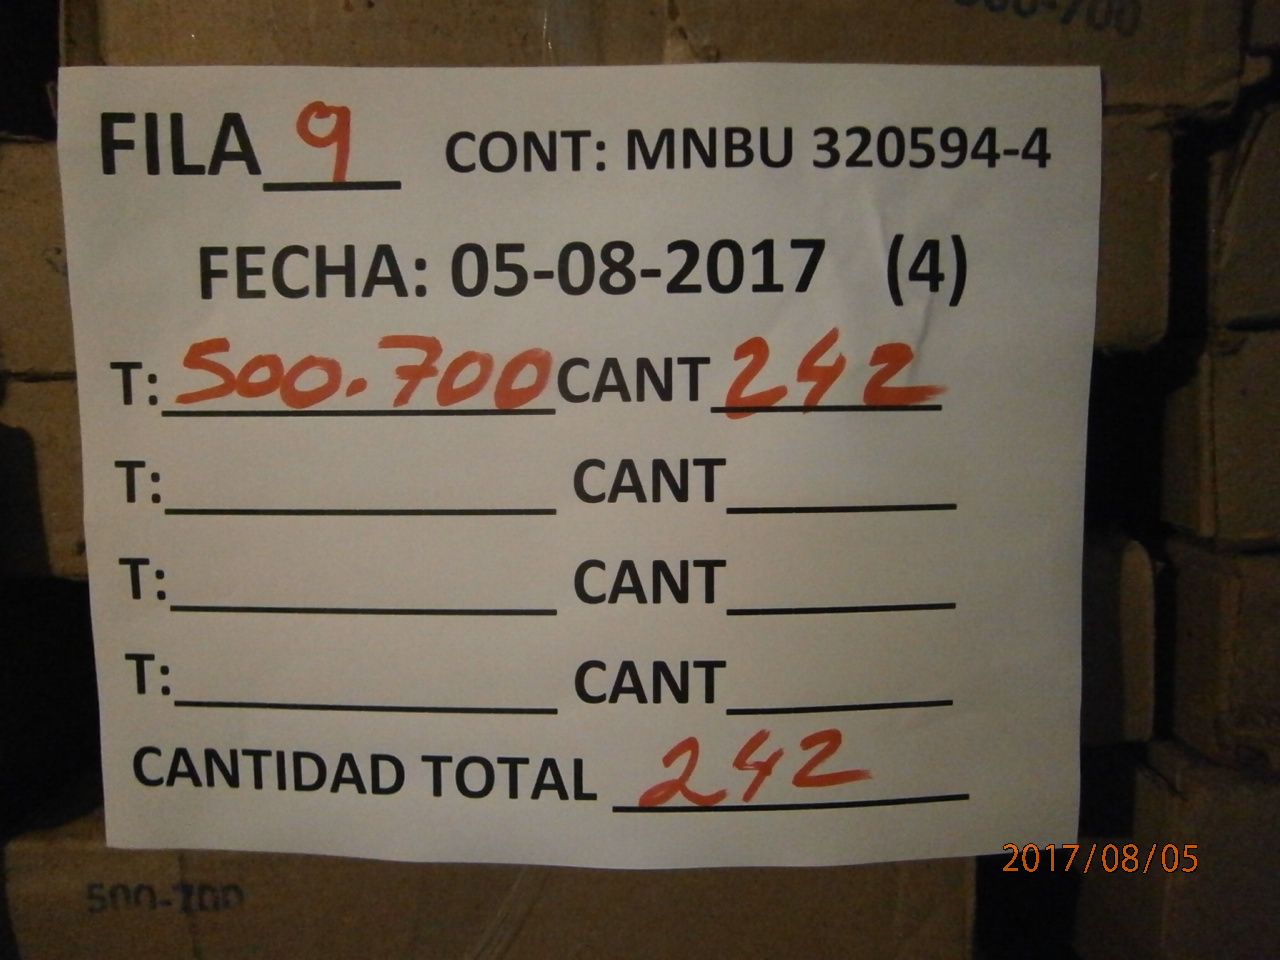 500-700
FILA 9 CONT: MNBU 320594-4
FECHA: 05-08-2017 (4)
T: 500.700 CANT 242
T: CANT
T: CANT
T: CANT
CANTIDAD TOTAL 242
2017/08/05
500-700